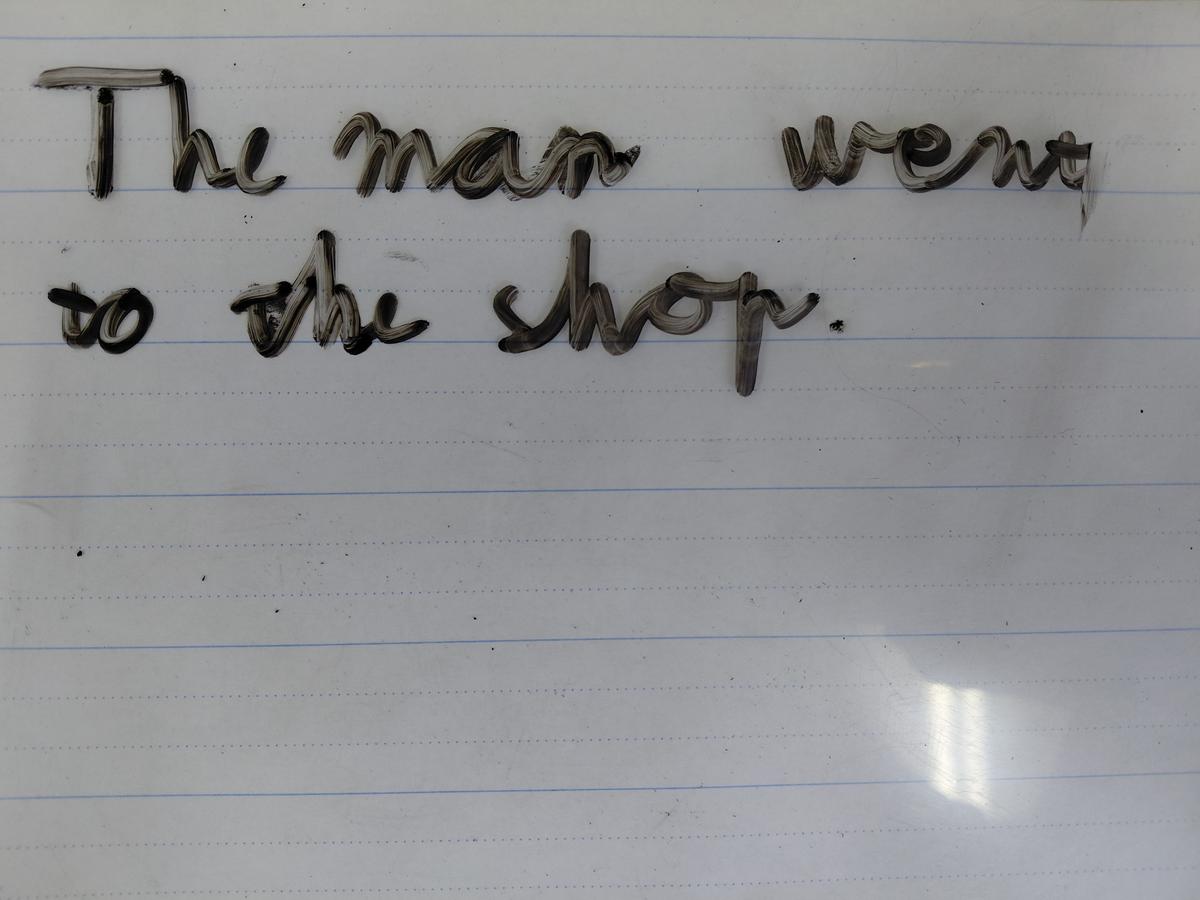 The man went
to the shop.